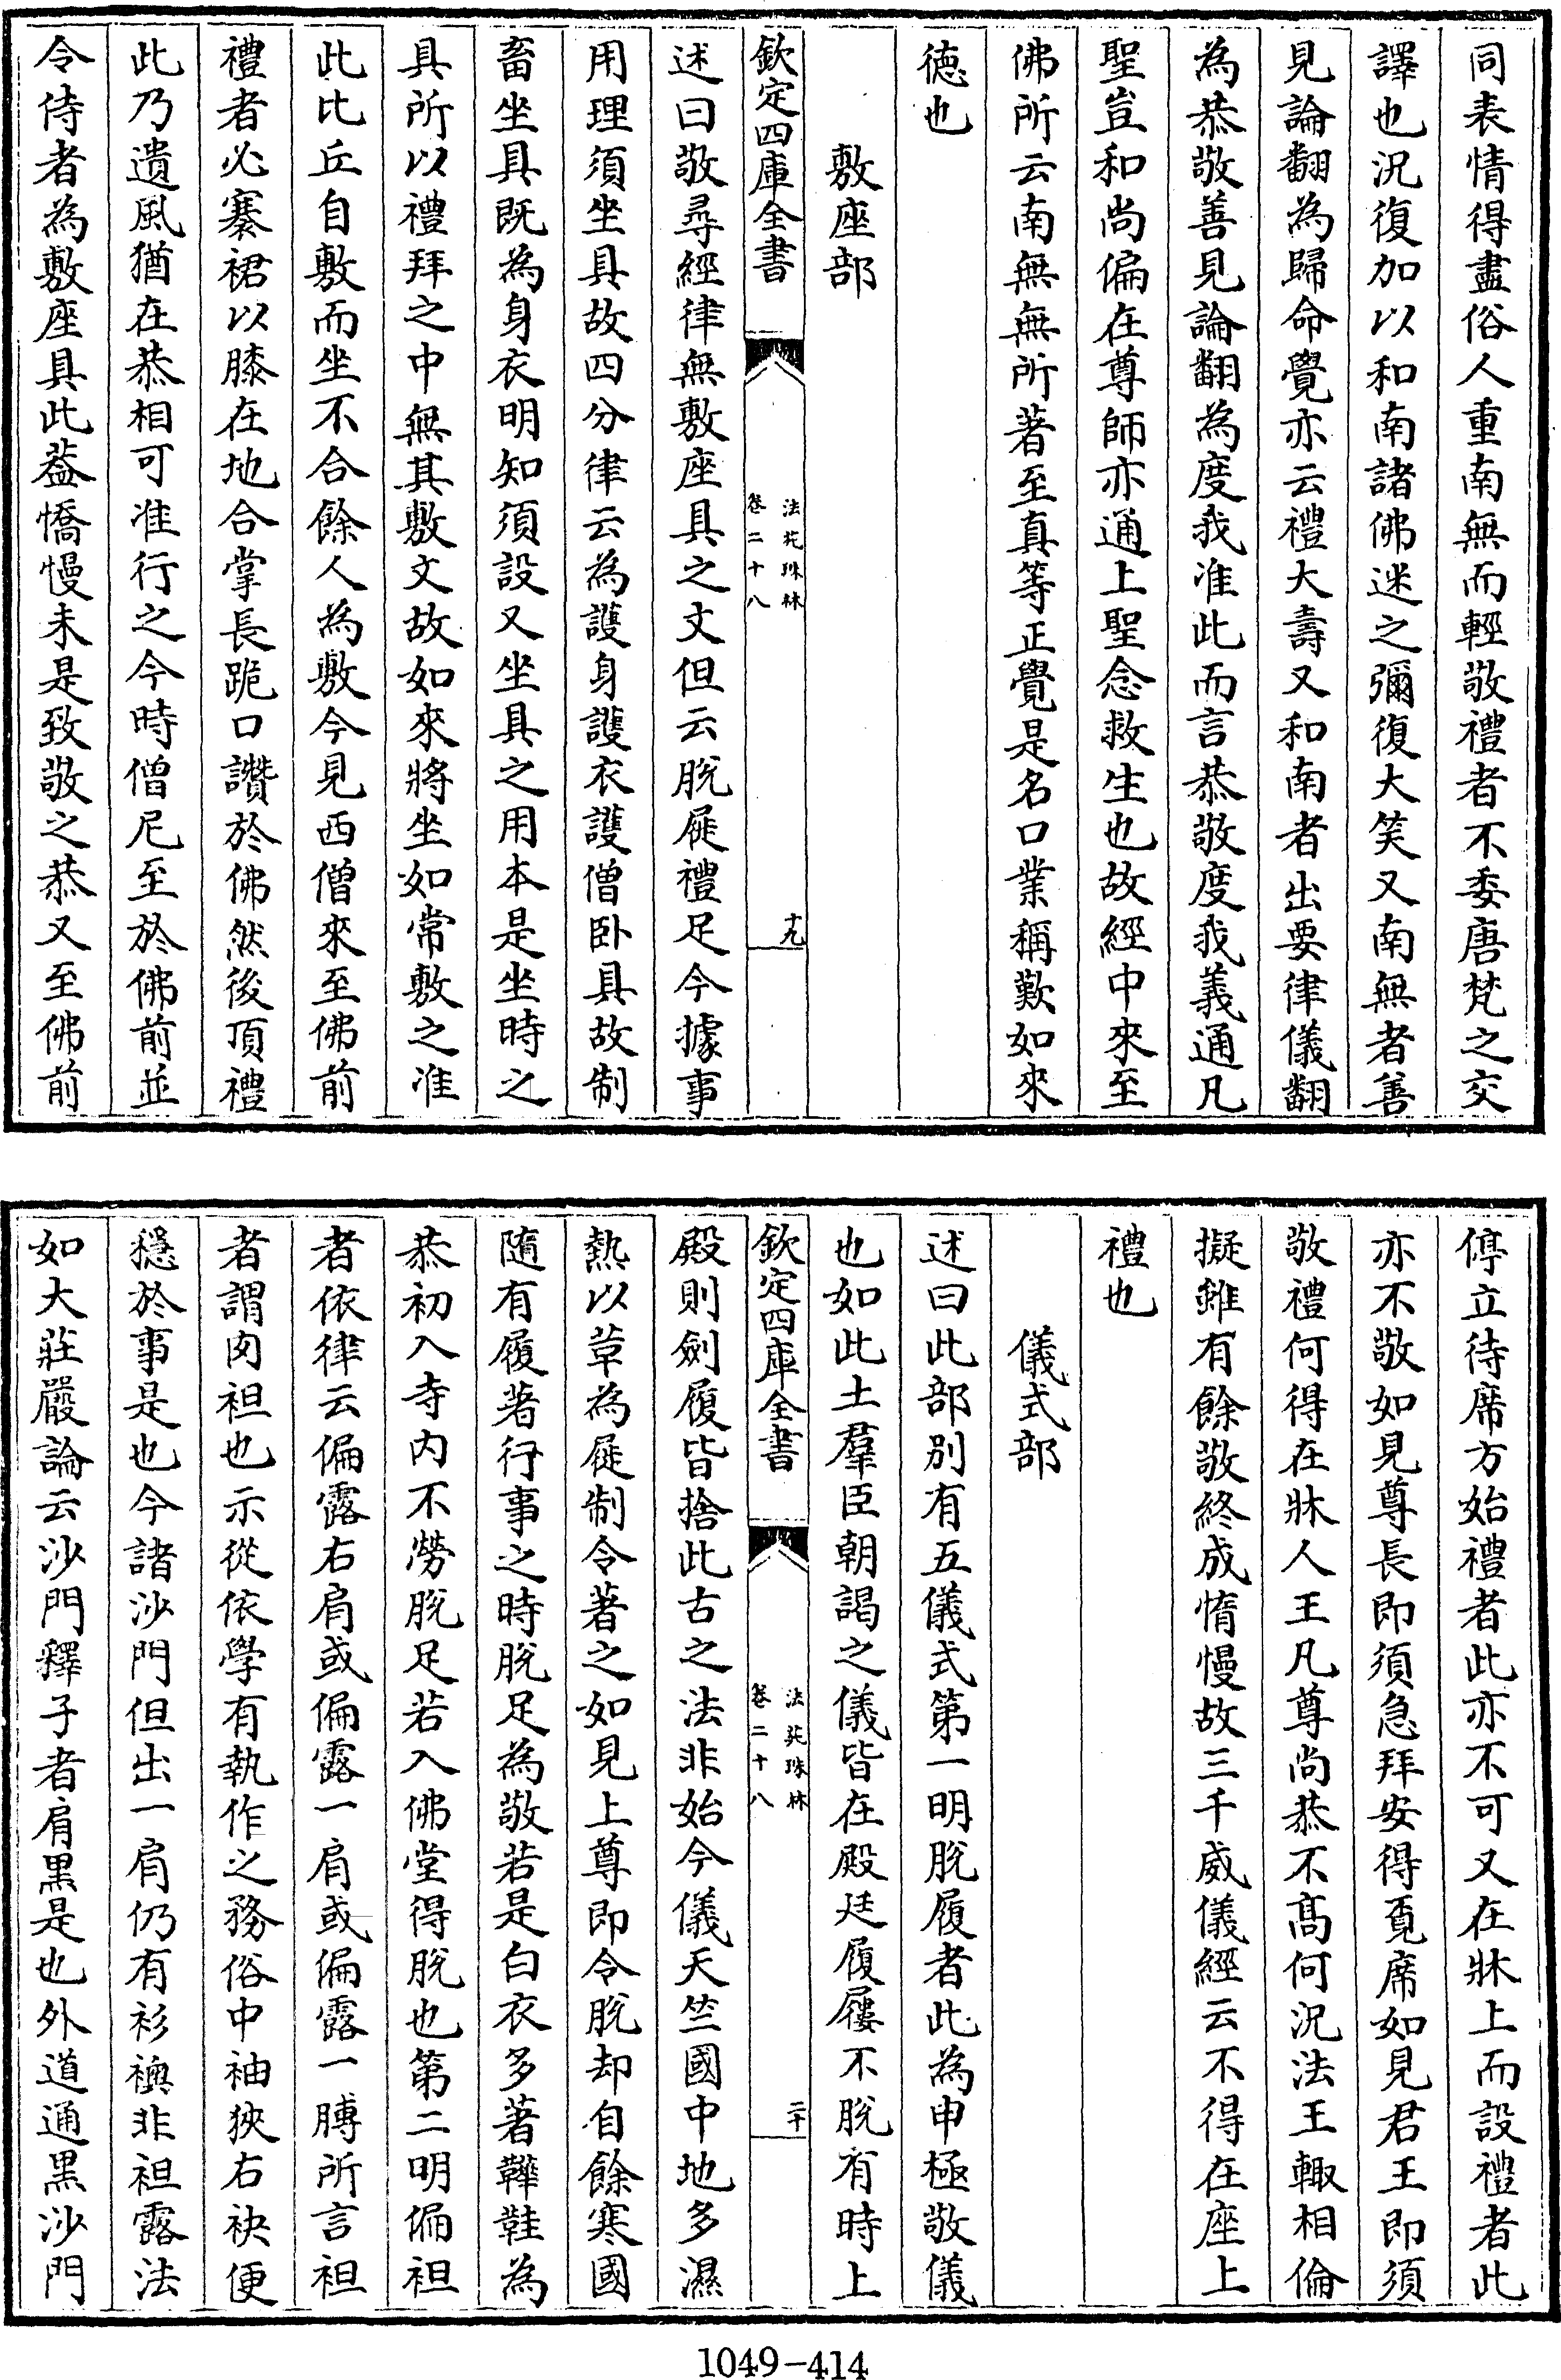 同表情得盡俗人重南無而輕敬禮者不委唐梵之交
譯也況復加以和南諸佛迷之彌復大笑又南無者善
見論翻為歸命覺亦云禮大壽又和南者出要律儀翻
為恭敬善見論翻為度我准此而言恭敬度我義通凡
聖豈和尚偏在尊師亦通上聖念救生也故經中來至
佛所云南無無所著至真等正覺是名口業稱歎如來
徳也
敷座部
欽定四庫全書
法苑珠林
卷二十八
十九
述曰敬尋經律無敷座具之文但云脫屣禮足今據事
用理須坐具故四分律云為護身護衣護僧卧具故制
畜坐具既為身衣明知須設又坐具之用本是坐時之
具所以禮拜之中無其敷文故如來將坐如常敷之准
此比丘自敷而坐不合餘人為敷今見西僧來至佛前
禮者必褰裙以膝在地合掌長跪口讚於佛然後頂禮
此乃遺風猶在恭相可准行之今時僧尼至於佛前並
令侍者為敷座具此葢憍慢未是致敬之恭又至佛前
停立待席方始禮者此亦不可又在牀上而設禮者此
亦不敬如見尊長即須急拜安得覔席如見君王即須
敬禮何得在牀人王凡尊尚恭不髙何況法王輙相倫
擬雖有餘敬終成惰慢故三千威儀經云不得在座上
禮也
儀式部
述曰此部別有五儀式第一明脫履者此為申極敬儀
也如此土羣臣朝謁之儀皆在殿廷履屨不脫有時上
欽定四庫全書
法苑珠林
卷二十八
二十
殿則劍履皆捨此古之法非始今儀天竺國中地多濕
熱以草為屣制令著之如見上尊即令脫却自餘寒國
隨有履著行事之時脫足為敬若是白衣多著鞾鞋為
恭初入寺内不勞脫足若入佛堂得脫也第二明偏袒
者依律云偏露右肩或偏露一肩或偏露一膊所言袒
者謂肉袒也示從依學有執作之務俗中袖狹右袂便
穩於事是也今諸沙門但出一肩仍有衫襖非袒露法
如大莊嚴論云沙門釋子者肩黒是也外道通黒沙門
1049-414